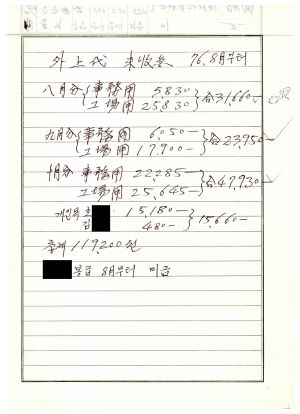 外上代 未收金 76.8月부터
八月分 事務用 5830
工場用 25830 合31,660—
九月分 事務用 6.050—
工場用 17.900— 合23,950—
十月分 事務用 22,285—
工場用 25,645— 合47,930—
15,180—
김 480— 15,660—
총계 119,200원
봉급 8月부터 미급